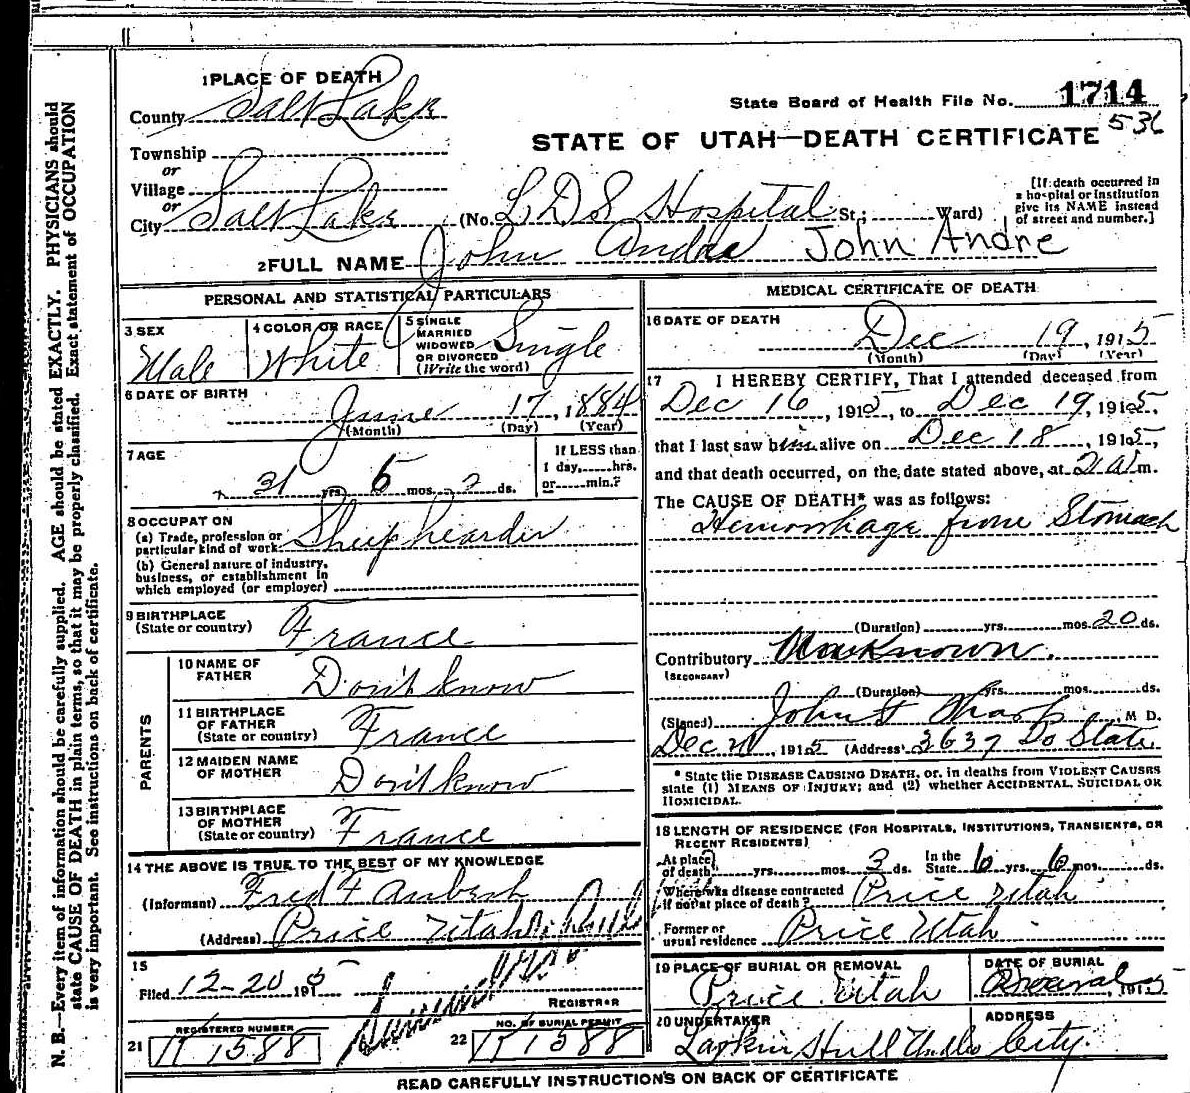 1 PLACE OF DEATH
County Salt Lake
State Board of Health File No. 1714
536
STATE OF UTAH—DEATH CERTIFICATE
Township
or
Village
or
City Salt Lake (No. L D S Hospital St.; Ward)
[If death occurred in
a hospital or institution
give its NAME instead
of street and number.]
2 FULL NAME John Andre John Andre
PERSONAL AND STATISTICAL PARTICULARS
3 SEX
Male
4 COLOR OR RACE
White
5 SINGLE
MARRIED
WIDOWED
OR DIVORCED
(Write the word)
Single
6 DATE OF BIRTH
June 17, 1884
(Month) (Day) (Year)
7 AGE
31 yrs. 6 mos. 2 ds.
If LESS than
1 day, hrs.
or min.?
8 OCCUPATION
(a) Trade, profession or
particular kind of work Sheep hearder
(b) General nature of industry,
business, or establishment in
which employed (or employer)
9 BIRTHPLACE
(State or country) France
PARENTS
10 NAME OF
FATHER Don't know
11 BIRTHPLACE
OF FATHER
(State or country) France
12 MAIDEN NAME
OF MOTHER Don't know
13 BIRTHPLACE
OF MOTHER
(State or country) France
14 THE ABOVE IS TRUE TO THE BEST OF MY KNOWLEDGE
(Informant) Fred F
(Address) Price Utah
15
Filed 12-20 1915
REGISTRAR
REGISTERED NUMBER
21
1588
NO. OF BURIAL PERMIT
22
1588
MEDICAL CERTIFICATE OF DEATH
16 DATE OF DEATH
Dec 19, 1915
(Month) (Day) (Year)
17 I HEREBY CERTIFY, That I attended deceased from
Dec 16, 1915, to Dec 19, 1915,
that I last saw him alive on Dec 18, 1915,
and that death occurred, on the date stated above, at 2 a m.
The CAUSE OF DEATH* was as follows:
Hemorrhage from Stomach
(Duration) yrs. mos. 20 ds.
Contributory Unknown.
(SECONDARY)
(Duration) yrs. mos. ds.
(Signed) John F Sharp M D.
Dec 1915 (Address) Do State
* State the DISEASE CAUSING DEATH, or, in deaths from VIOLENT CAUSES
state (1) MEANS OF INJURY; and (2) whether ACCIDENTAL, SUICIDAL OR
HOMICIDAL.
18 LENGTH OF RESIDENCE (FOR HOSPITALS, INSTITUTIONS, TRANSIENTS, OR
RECENT RESIDENTS)
At place
of death yrs. mos. 3 ds. In the
State 6 yrs. 6 mos. ds.
Where was disease contracted
if not at place of death? Price Utah
Former or
usual residence Price Utah
19 PLACE OF BURIAL OR REMOVAL
Price Utah
DATE OF BURIAL
1915
20 UNDERTAKER
Larkin Hull Undtk
ADDRESS
City.
READ CAREFULLY INSTRUCTIONS ON BACK OF CERTIFICATE
N. B.—Every item of information should be carefully supplied. AGE should be stated EXACTLY. PHYSICIANS should
state CAUSE OF DEATH in plain terms, so that it may be properly classified. Exact statement of OCCUPATION
is very important. See instructions on back of certificate.